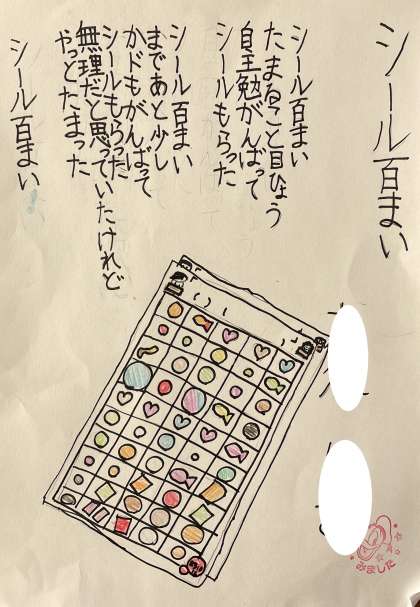 シール百まい
シール百まい
たまること目ひょう
自主勉がんばって
シールもらった
シール百まい
まであと少し
かドもがんばって
シールもらった
無理だと思っていたけれど
やっとたまった
シール百まい
みました